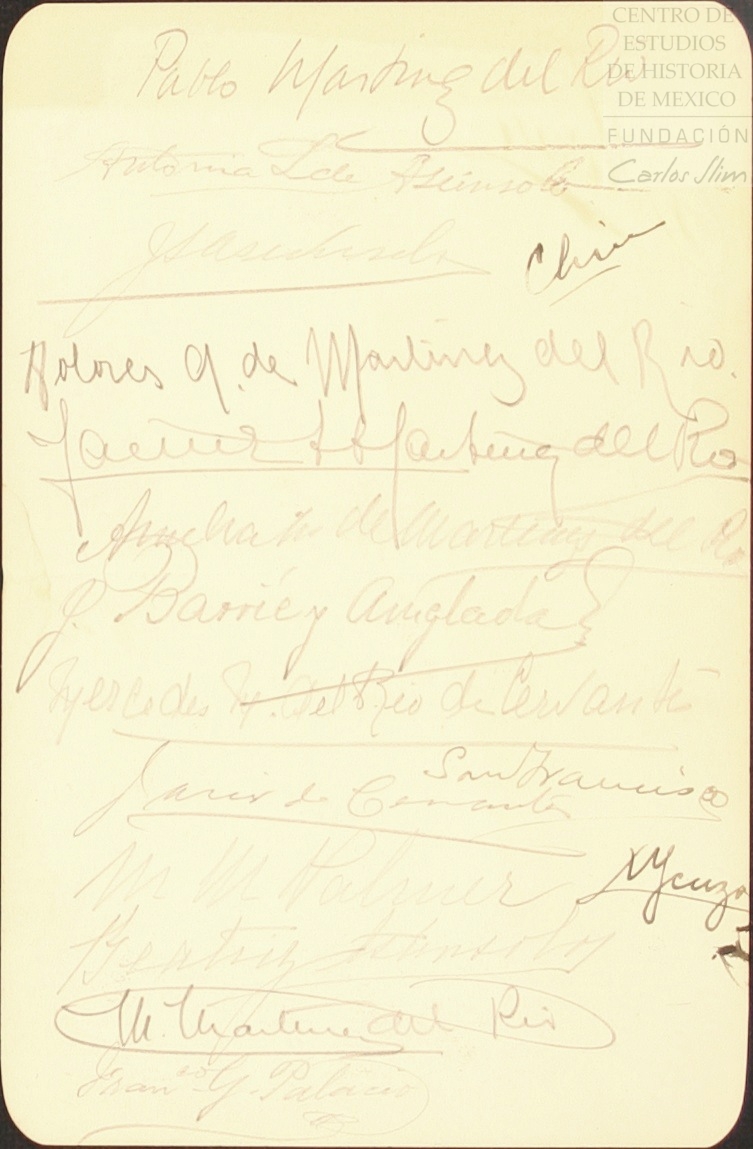 CENTRO DE
ESTUDIOS
DE HISTORIA
DE MEXICO
FUNDACIÓN
Carlos Slim
Pablo Martinez del Rio
Antonia L de Asúnsolo
Dolores G. de Martinez del Rio.
Jaime Martinez del Rio
de Martinez del Rio
J. Barrié y Anglada
Mercedes M. del Rio de Cervantes
San Francisco
de Cervantes
M M Palmer
Beatriz Asunsolo
M. Martinez del Rio
Fran co G. Palacio